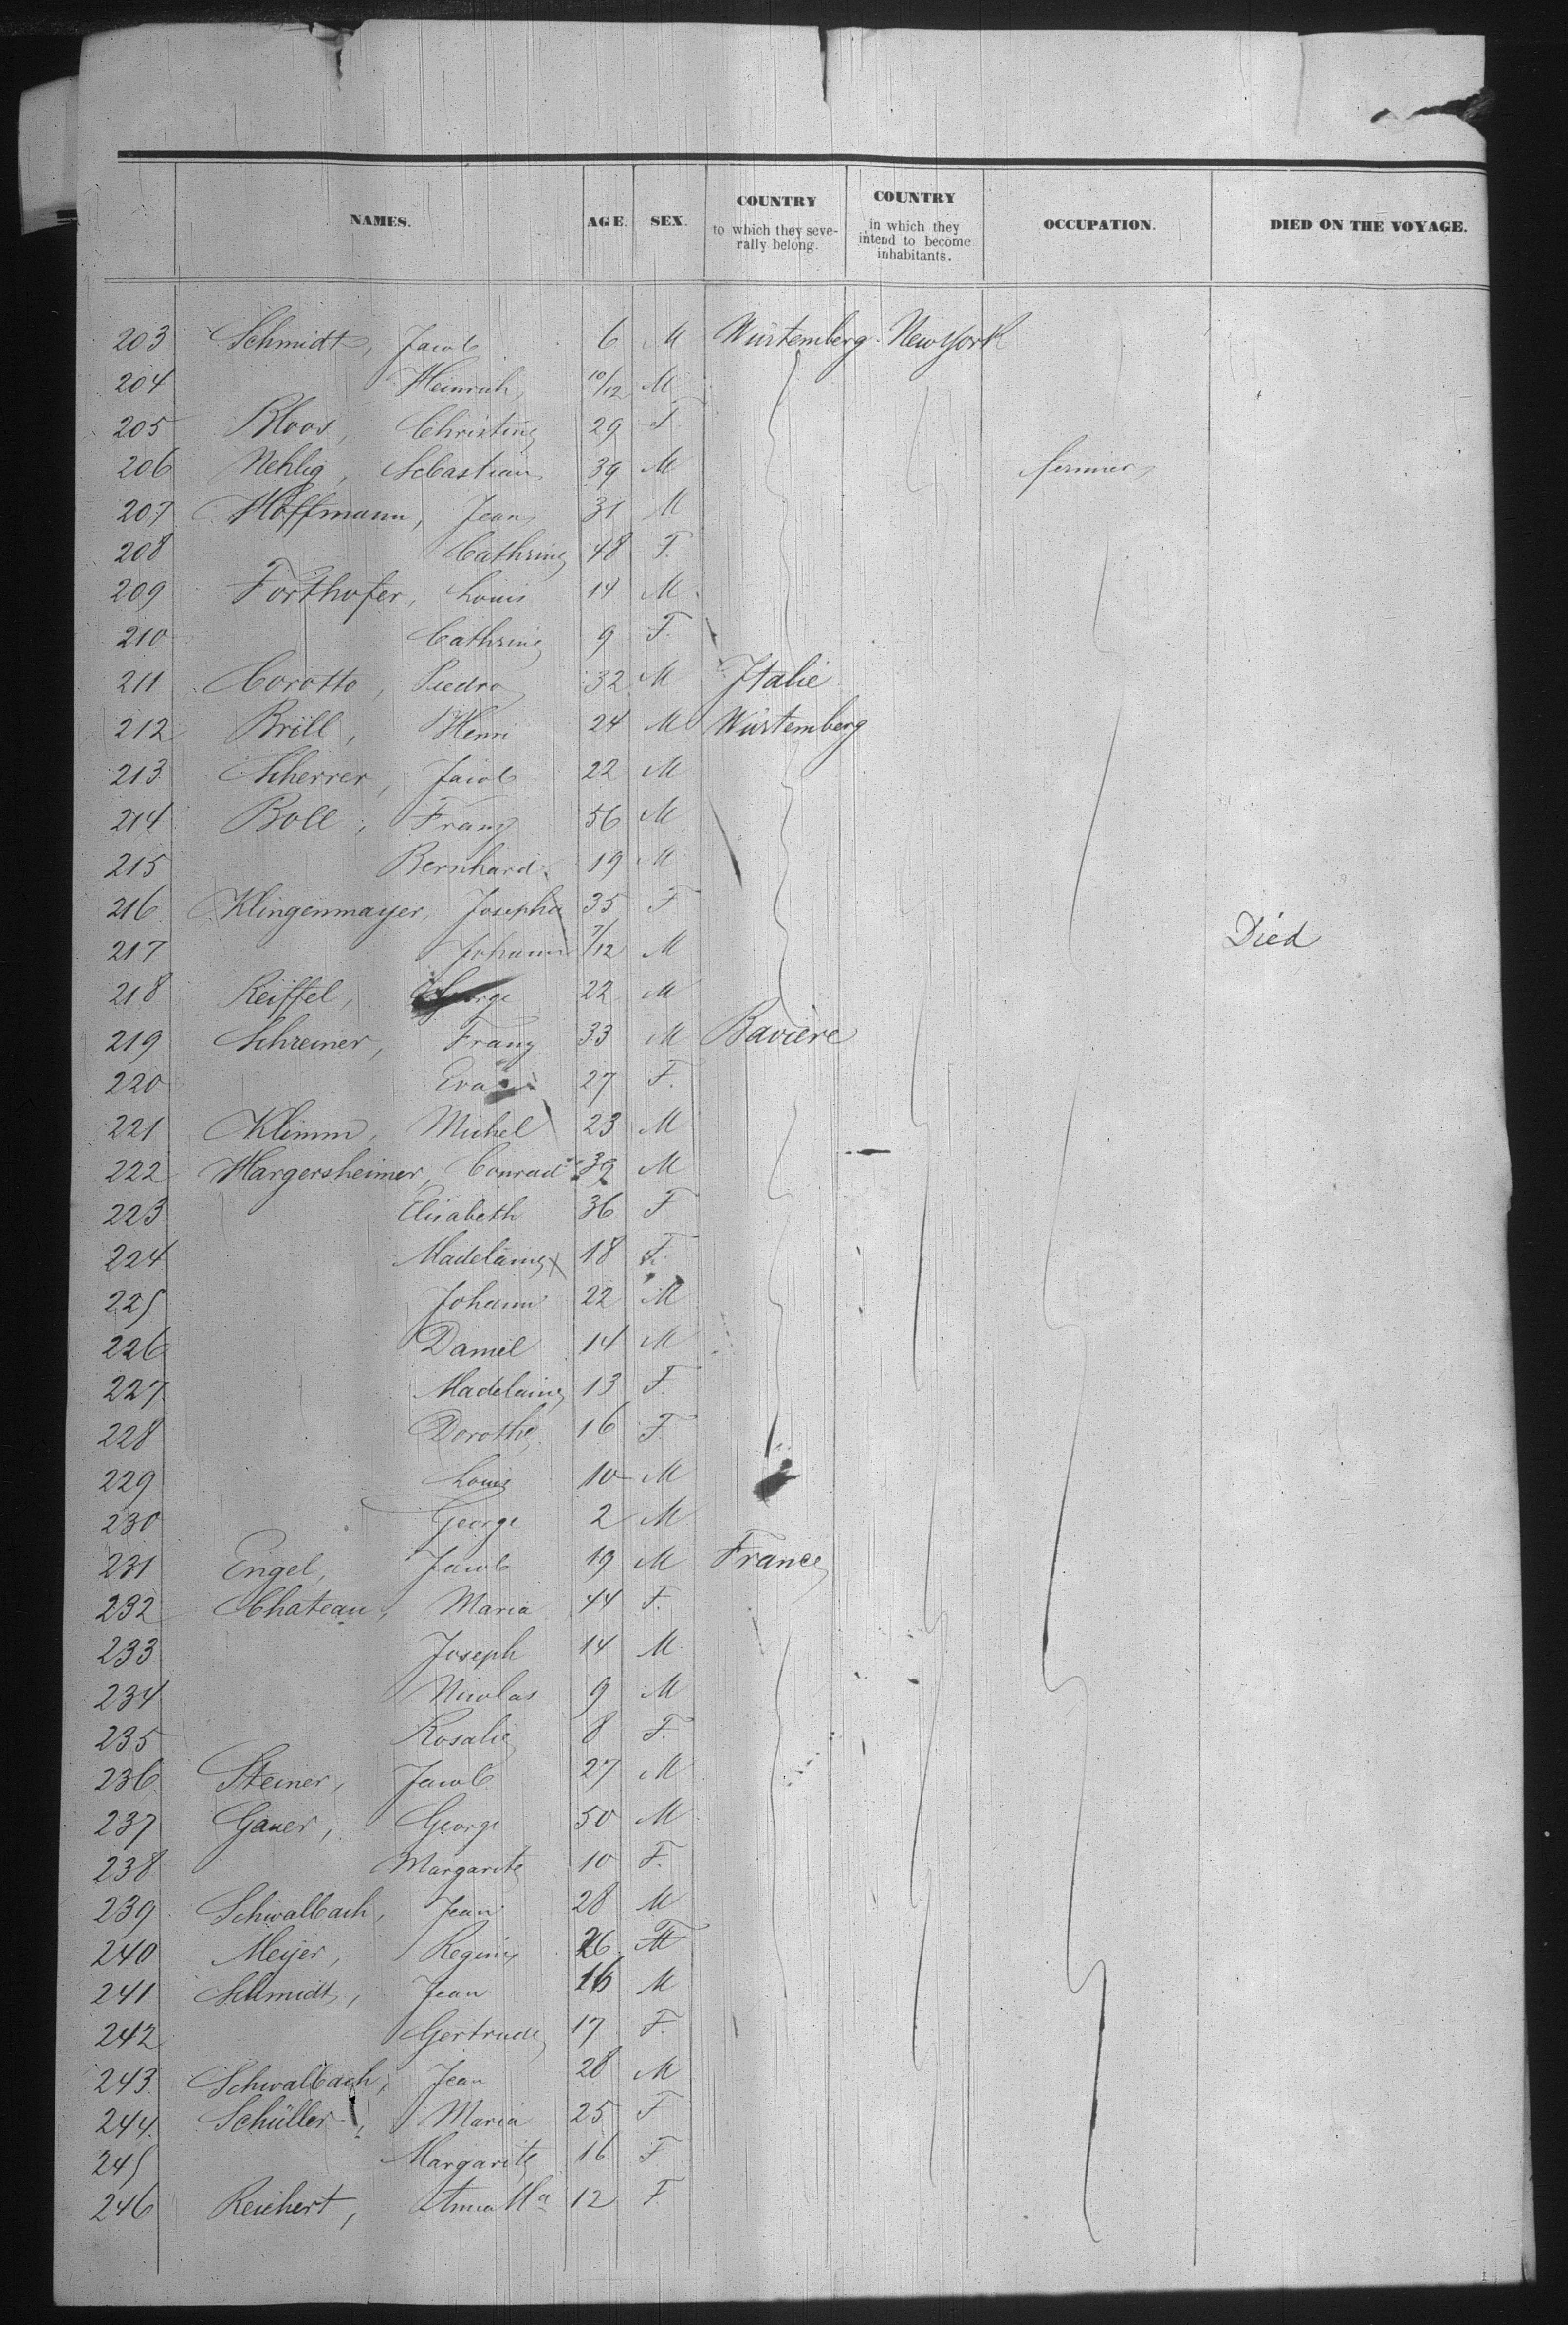 NAMES. AGE. SEX. COUNTRY to which they seve-rally belong. COUNTRY in which they intend to become inhabitants. OCCUPATION. DIED ON THE VOYAGE.
203 Schmidt, Jacob 6 M Würtemberg New York
204 Heinrich 10/12 M
205 Bloos, Christine 29 F
206 Nehlig, Sebastian 39 M fermier
207 Hoffmann, Jean 31 M
208 Cathrine 48 F.
209 Forthofer, Louis 14 M
210 Cathrine 9 F.
211 Corotto, Piedro 32 M Italie
212 Brill, Henri 24 M Würtemberg
213 Scherrer, Jacob 22 M
214 Boll, Franz 56 M
215 Bernhard 19 M
216 Klingenmayer, Josepha 35 F
217 Johann 7/12 M Died
218 Reiffel, George 22 M
219 Schreiner, Franz 33 M Baviere
220 Eva 27 F.
221 Klimm, Michel 23 M
222 Hargersheimer, Conrad 39 M
223 Elisabeth 36 F
224 Madelaine 18 F.
225 Johann 22 M
226 Daniel 14 M
227 Madelaine 13 F.
228 Dorothe 16 F.
229 Louis 10 M
230 George 2 M
231 Engel, Jacob 19 M France
232 Chateau, Maria 44 F.
233 Joseph 14 M
234 Nicolas 9 M
235 Rosalie 8 F.
236 Steiner, Jacob 27 M
237 Gauer, George 50 M
238 Margarite 10 F.
239 Schwalbach, Jean 28 M
240 Meyer, Regine 26 F
241 Schmidt, Jean 16 M
242 Gertrude 17 F.
243 Schwalbach, Jean 28 M
244 Schüller, Maria 25 F
245 Margarite 16 F
246 Reichert, Anna Ma 12 F.